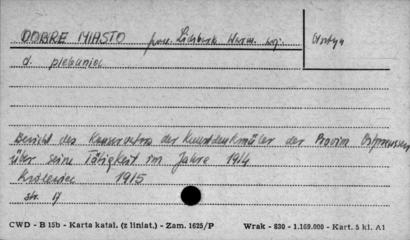 DOBRE MIASTO pow. Lidzbark Warm. woj. Olsztyn
d. plebaniec
Bericht des Konservators der Kunstdenkmäler der Provinz Ostpreussen
über seine Tätigkeit im Jahre 1914
Królewiec 1915
str. 17
CWD - B 15b - Karta katal. (z liniat.) - Zam. 1625/P Wrak - 830 - 1.169.000 - Kart. 5 kl. A1